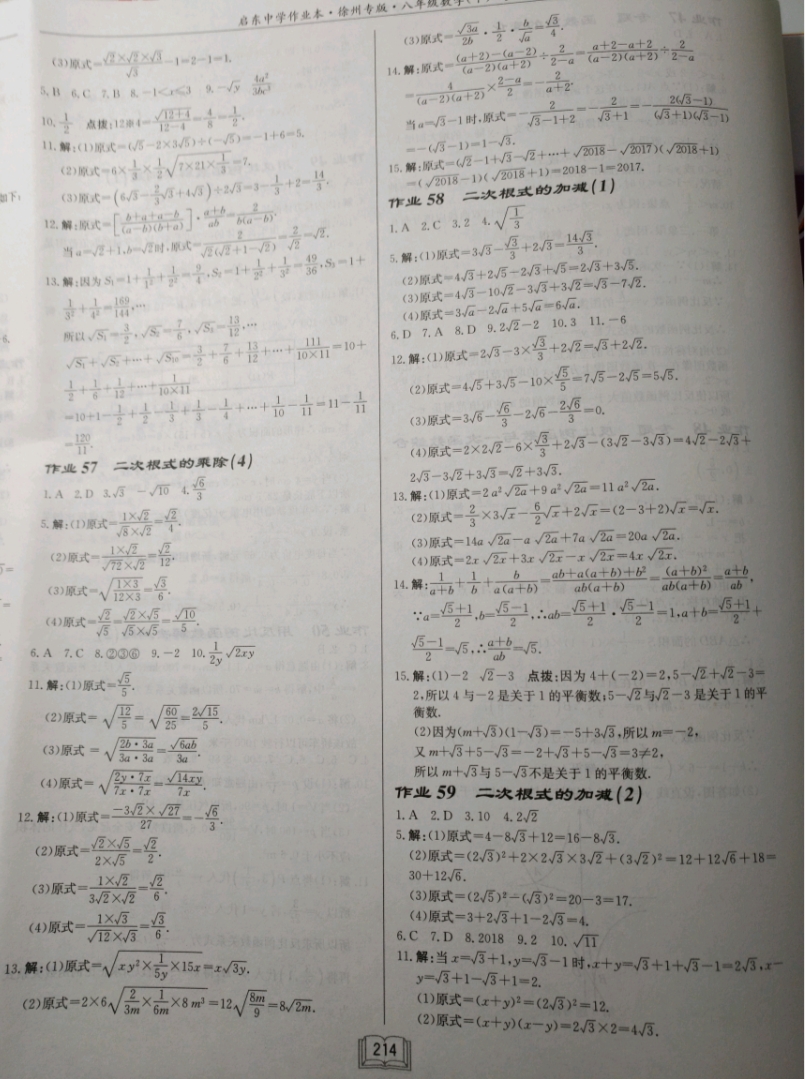 启东中学作业本·徐州专版·八年级数学
(3)原式=√2×√2×√3/√3-1=2-1=1.
5.B 6.C 7.B 8.-1<x≤3 9.-√y 4a²/3bc³
10.1/2 点拨:12※4=√(12+4)/(12-4)=4/8=1/2.
11.解:(1)原式=(√5-2×3√5)÷(-√5)=-1+6=5.
(2)原式=6×1/3×1/2√(7×21×1/3)=7.
(3)原式=(6√3-2/3√3+4√3)÷2√3=3-1/3+2=14/3.
12.解:原式=[(b+a+a-b)/((a-b)(b+a))]·(a+b)/ab=2/(b(a-b)).
当a=√2+1,b=√2时,原式=2/(√2(√2+1-√2))=2/√2=√2.
13.解:因为S₁=1+1/1²+1/2²=9/4,S₂=1+1/2²+1/3²=49/36,S₃=1+
1/3²+1/4²=169/144,…
所以√S₁=3/2,√S₂=7/6,√S₃=13/12,…
√S₁+√S₂+…+√S₁₀=3/2+7/6+13/12+…+111/(10×11)=10+
1/2+1/6+1/12+…+1/(10×11)
=10+1-1/2+1/2-1/3+1/3-1/4+…+1/10-1/11=11-1/11
=120/11.
作业57 二次根式的乘除(4)
1.A 2.D 3.√3 -√10 4.√6/3
5.解:(1)原式=1×√2/(√8×√2)=√2/4.
(2)原式=1×√2/(√72×√2)=√2/12.
(3)原式=√(1×3/(12×3))=√3/6.
(4)原式=√2/√5=√2×√5/(√5×√5)=√10/5.
6.A 7.C 8.②③⑥ 9.-2 10.1/2y√2xy
11.解:(1)原式=√5/5.
(2)原式=√(12/5)=√(60/25)=2√15/5.
(3)原式=√(2b·3a/(3a·3a))=√6ab/3a.
(4)原式=√(2y·7x/(7x·7x))=√14xy/7x.
12.解:(1)原式=-3√2×√27/27=-√6/3.
(2)原式=√2×√5/(2×√5)=√2/2.
(3)原式=1×√2/(3√2×√2)=√2/6.
(4)原式=1×√3/(√12×√3)=√3/6.
13.解:(1)原式=√(xy²×1/5y×15x)=x√3y.
(2)原式=2×6√(2/3m×1/6m×8m³)=12√(8m/9)=8√2m.
(3)原式=√3a/2b·1/2·b/√a=√3/4.
14.解:原式=((a+2)-(a-2))/((a-2)(a+2))÷2/(2-a)=(a+2-a+2)/((a-2)(a+2))÷2/(2-a)
=4/((a-2)(a+2))×(2-a)/2=-2/(a+2).
当a=√3-1时,原式=-2/(√3-1+2)=-2/(√3+1)=-2(√3-1)/((√3+1)(√3-1))
=-(√3-1)=1-√3.
15.解:原式=(√2-1+√3-√2+…+√2018-√2017)(√2018+1)
=(√2018-1)(√2018+1)=2018-1=2017.
作业58 二次根式的加减(1)
1.A 2.C 3.2 4.√(1/3)
5.解:(1)原式=3√3-√3/3+2√3=14√3/3.
(2)原式=4√3+2√5-2√3+√5=2√3+3√5.
(3)原式=4√3-10√2-3√3+3√2=√3-7√2.
(4)原式=3√a-2√a+5√a=6√a.
6.D 7.A 8.D 9.2√2-2 10.3 11.-6
12.解:(1)原式=2√3-3×√3/3+2√2=√3+2√2.
(2)原式=4√5+3√5-10×√5/5=7√5-2√5=5√5.
(3)原式=3√6-√6/3-2√6-2√6/3=0.
(4)原式=2×2√2-6×√3/3+2√3-(3√2-3√3)=4√2-2√3+
2√3-3√2+3√3=√2+3√3.
13.解:(1)原式=2a²√2a+9a²√2a=11a²√2a.
(2)原式=2/3×3√x-6/2√x+2√x=(2-3+2)√x=√x.
(3)原式=14a√2a-a√2a+7a√2a=20a√2a.
(4)原式=2x√2x+3x√2x-x√2x=4x√2x.
14.解:1/(a+b)+1/b+b/(a(a+b))=(ab+a(a+b)+b²)/(ab(a+b))=(a+b)²/(ab(a+b))=(a+b)/ab,
∵a=(√5+1)/2,b=(√5-1)/2,∴ab=(√5+1)/2·(√5-1)/2=1,a+b=(√5+1)/2+
(√5-1)/2=√5,∴(a+b)/ab=√5.
15.解:(1)-2 √2-3 点拨:因为4+(-2)=2,5-√2+√2-3=
2,所以4与-2是关于1的平衡数;5-√2与√2-3是关于1的平
衡数.
(2)因为(m+√3)(1-√3)=-5+3√3,所以m=-2,
又m+√3+5-√3=-2+√3+5-√3=3≠2,
所以m+√3与5-√3不是关于1的平衡数.
作业59 二次根式的加减(2)
1.A 2.D 3.10 4.2√2
5.解:(1)原式=4-8√3+12=16-8√3.
(2)原式=(2√3)²+2×2√3×3√2+(3√2)²=12+12√6+18=
30+12√6.
(3)原式=(2√5)²-(√3)²=20-3=17.
(4)原式=3+2√3+1-2√3=4.
6.C 7.D 8.2018 9.2 10.√11
11.解:当x=√3+1,y=√3-1时,x+y=√3+1+√3-1=2√3,x-
y=√3+1-√3+1=2.
(1)原式=(x+y)²=(2√3)²=12.
(2)原式=(x+y)(x-y)=2√3×2=4√3.
214